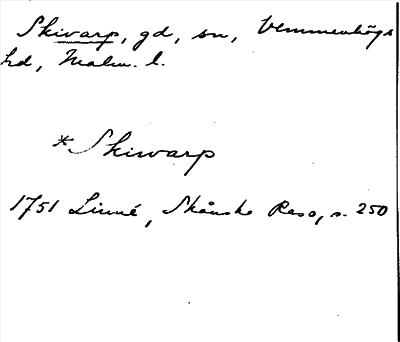 Skivarp, gd, sn, Vemmenhögs
hd, Malm. l.
*Skivarp
1751 Linné, Skånska Resa, s. 250